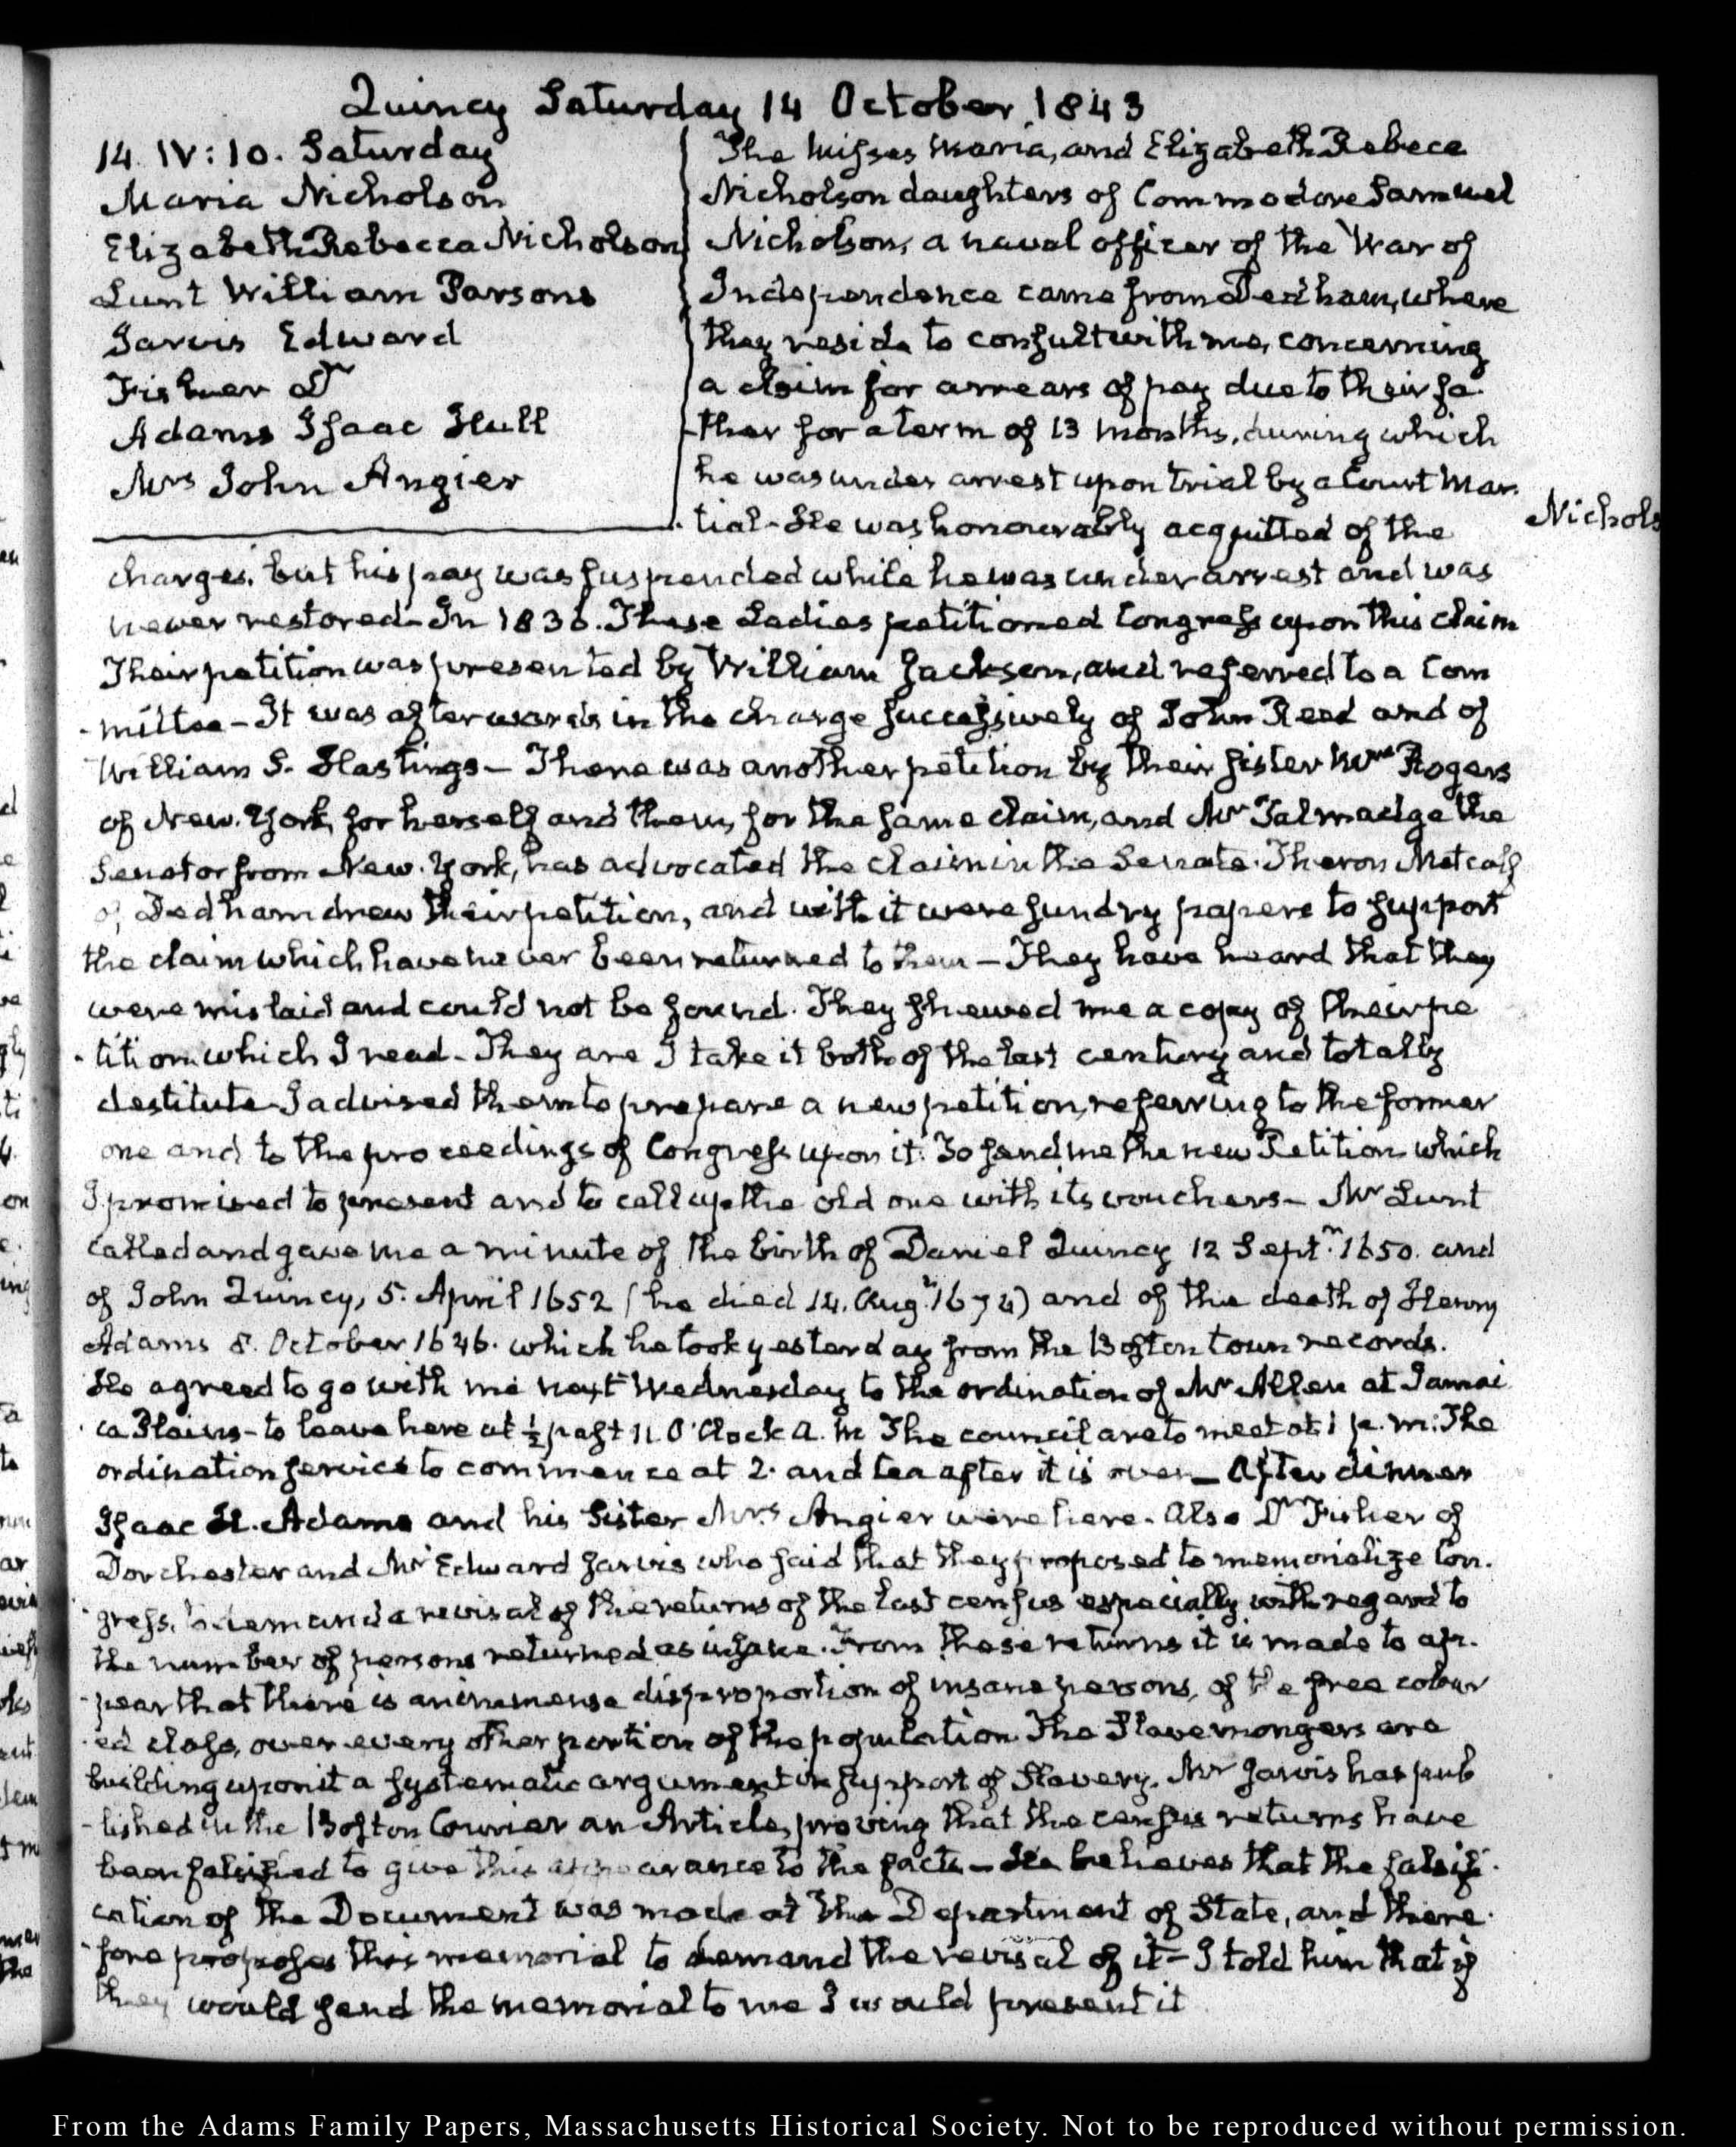 Quincy Saturday 14 October 1843
14. IV:10. Saturday
Maria Nicholson
Elizabeth Rebecca Nicholson
Lunt William Parsons
Jarvis Edward
Fisher Dr
Adams Isaac Hull
Mrs John Angier
The Misses Maria, and Elizabeth Rebecca
Nicholson daughters of Commodore Samuel
Nicholson, a naval officer of the War of
Independence came from Dedham, where
they reside to consult with me, concerning
a claim for arrears of pay due to their fa-
-ther for a term of 13 months, during which
he was under arrest upon trial by a Court Mar-
-tial - He was honourably acquitted of the
Nichols
charges, but his pay was suspended while he was under arrest and was
never restored - In 1836. These Ladies petitioned Congress upon this claim
Their petition was presented by William Jackson, and referred to a Com
-mittee - It was afterwards in the charge successively of John Reed and of
William S. Hastings - There was another petition by their sister Mrs Rogers
of New-York, for herself and them, for the same claim, and Mr Talmadge the
Senator from New-York, has advocated the claim in the Senate. Theron Metcalf
of Dedham drew their petition, and with it were sundry papers to support
the claim which have never been returned to them - They have heard that they
were mislaid and could not be found. They shewed me a copy of their pe
-tition which I read - They are I take it both of the last century and totally
destitute - I advised them to prepare a new petition, referring to the former
one and to the proceedings of Congress upon it: To send me the new Petition which
I promised to present and to call up the old one with its vouchers - Mr Lunt
called and gave me a minute of the birth of Daniel Quincy 12 Septr. 1650. and
of John Quincy, 5. April 1652 (he died 14. Augt. 1674) and of the death of Henry
Adams 8. October 1646. which he took yesterday from the Boston town records.
He agreed to go with me next Wednesday to the ordination of Mr Allen at Jamai
-ca Plains - to leave here at ½ past 11. O'Clock A.M. The council are to meet at 1 p.m: The
ordination service to commence at 2. and tea after it is over - After dinner
Isaac H. Adams and his Sister Mrs Angier were here. Also Dr Fisher of
Dorchester and Mr Edward Jarvis who said that they proposed to memorialize Con-
-gress, to demand a revisal of the returns of the last census especially with regard to
the number of persons returned as insane. From these returns it is made to ap-
-pear that there is an immense disproportion of insane persons, of the free colour
-ed class, over every other portion of the population. The Slavemongers are
building upon it a systematic argument in support of Slavery. Mr Jarvis has pub
-lished in the Boston Courier an Article, proving that the census returns have
been falsified to give this appearance to the facts - He believes that the falsifi-
cation of the Document was made at the Department of State, and there-
-fore proposes this memorial to demand the revisal of it - I told him that if
they would send the memorial to me I would present it
From the Adams Family Papers, Massachusetts Historical Society. Not to be reproduced without permission.